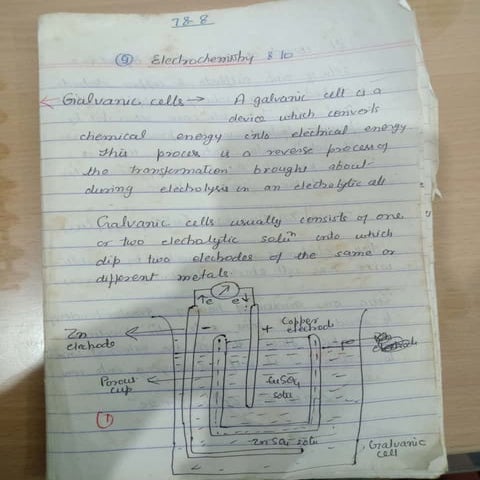 78-8
(9) Electrochemistry 8 10
Galvanic cells → A galvanic cell is a
device which converts
chemical energy into electrical energy
This process is a reverse process of
the transformation brought about
during electrolysis in an electrolytic cell
Galvanic cells usually consists of one
or two electrolytic soluⁿ into which
dip two electrodes of the same or
different metals.
↑e e↓
Zn
electrode
-
+
Copper
electrode
Porous
cup
CuSO4
solu
(1)
ZnSO4 solu
Galvanic
cell